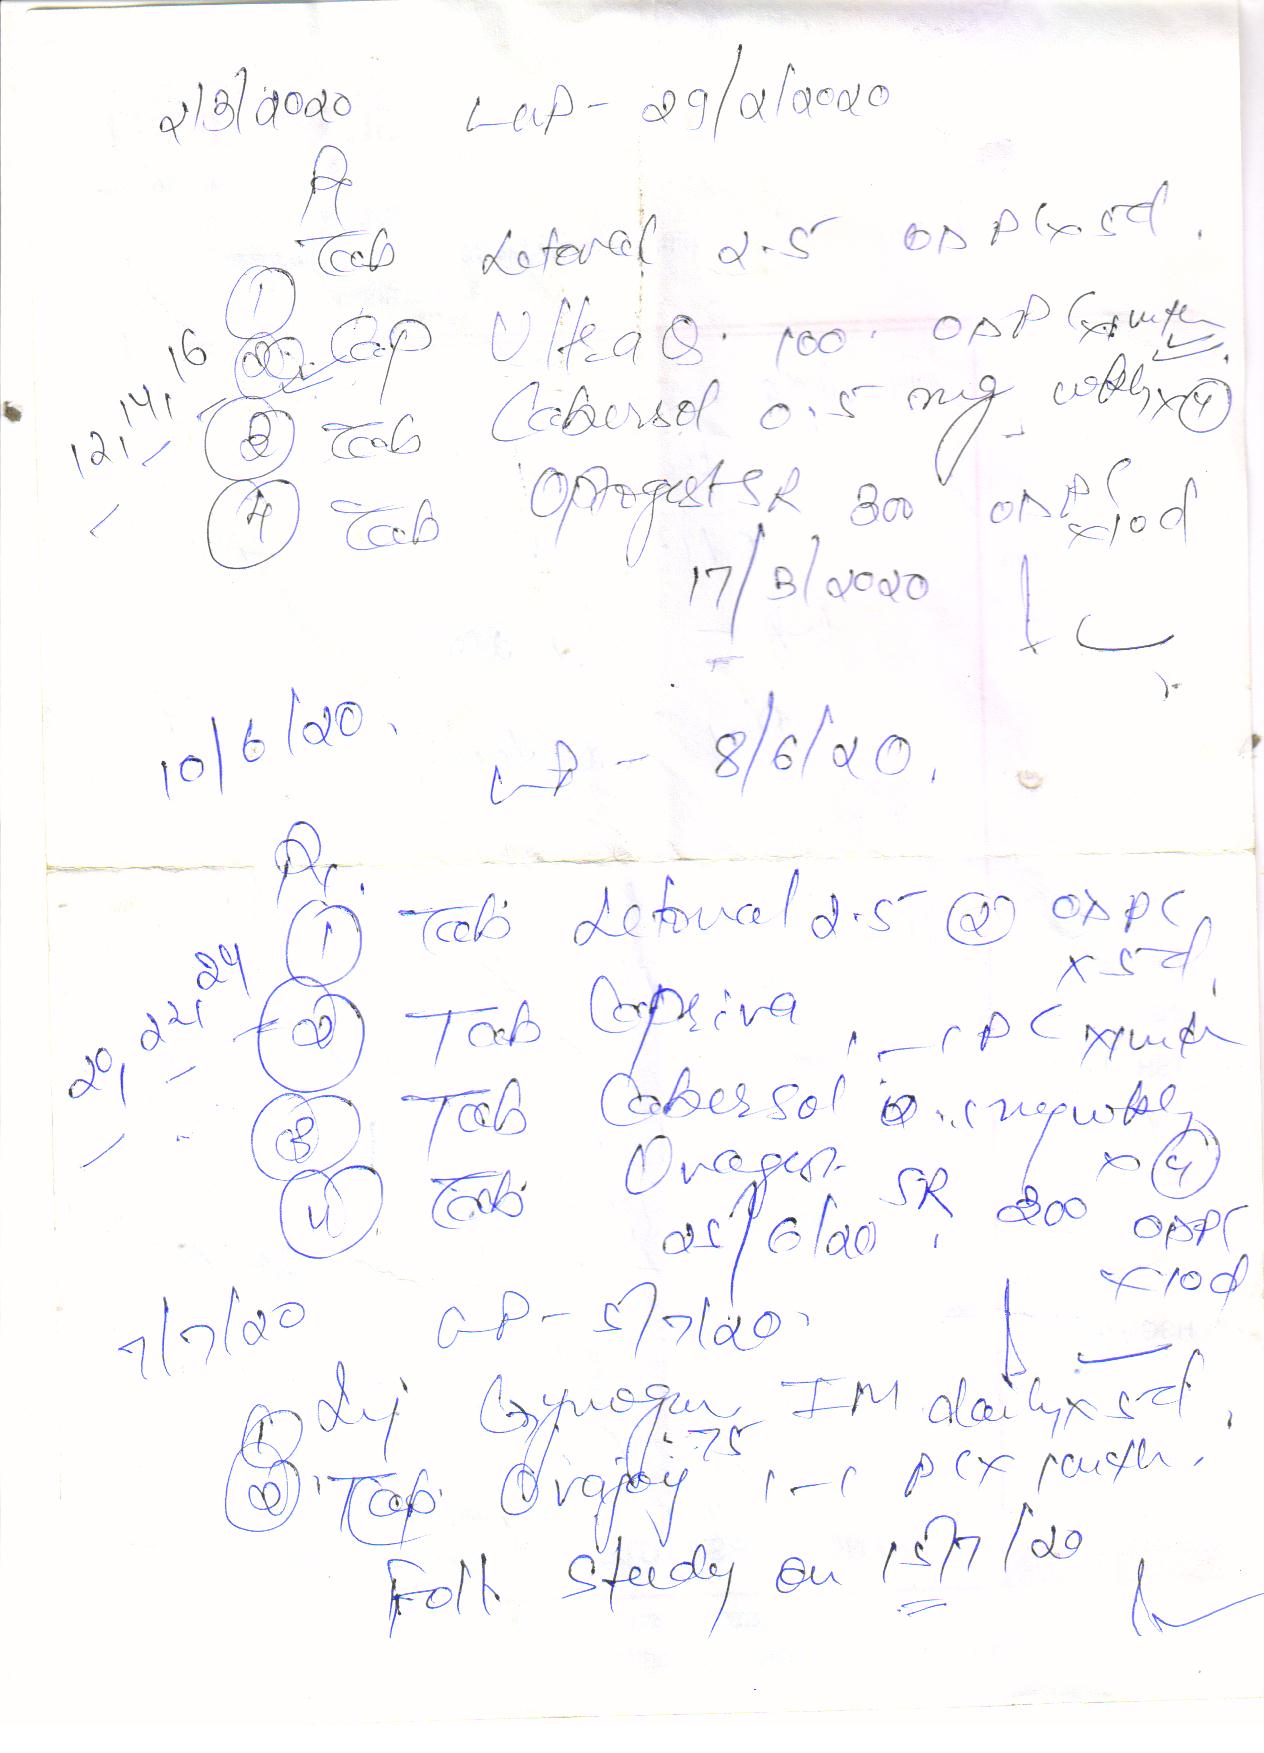 2/3/2020 LMP - 29/2/2020
Rx
① Tab Letoval 2.5 OD PC x 5d.
② Cap Ultra Q. 100. OD PC x 1 mth
③ Tab Cabersol 0.5 mg wkly x ④
④ Tab SR 300 OD PC x 10d
12, 14, 16
17/3/2020
10/6/20. LMP - 8/6/20.
Rx.
① Tab Letoval 2.5 ② OD PC x 5d.
② Tab 1-1 PC x 1 mth
③ Tab Cabersol 0.5 mg wkly x ④
④ Tab SR 300 OD PC x 10d
20, 22, 24
25/6/20
7/7/20 LMP - 5/7/20.
① Inj 75 IM daily x 5d.
② Tab Ovajoy 1-1 PC x 1 mth.
Foll Study on 15/7/20